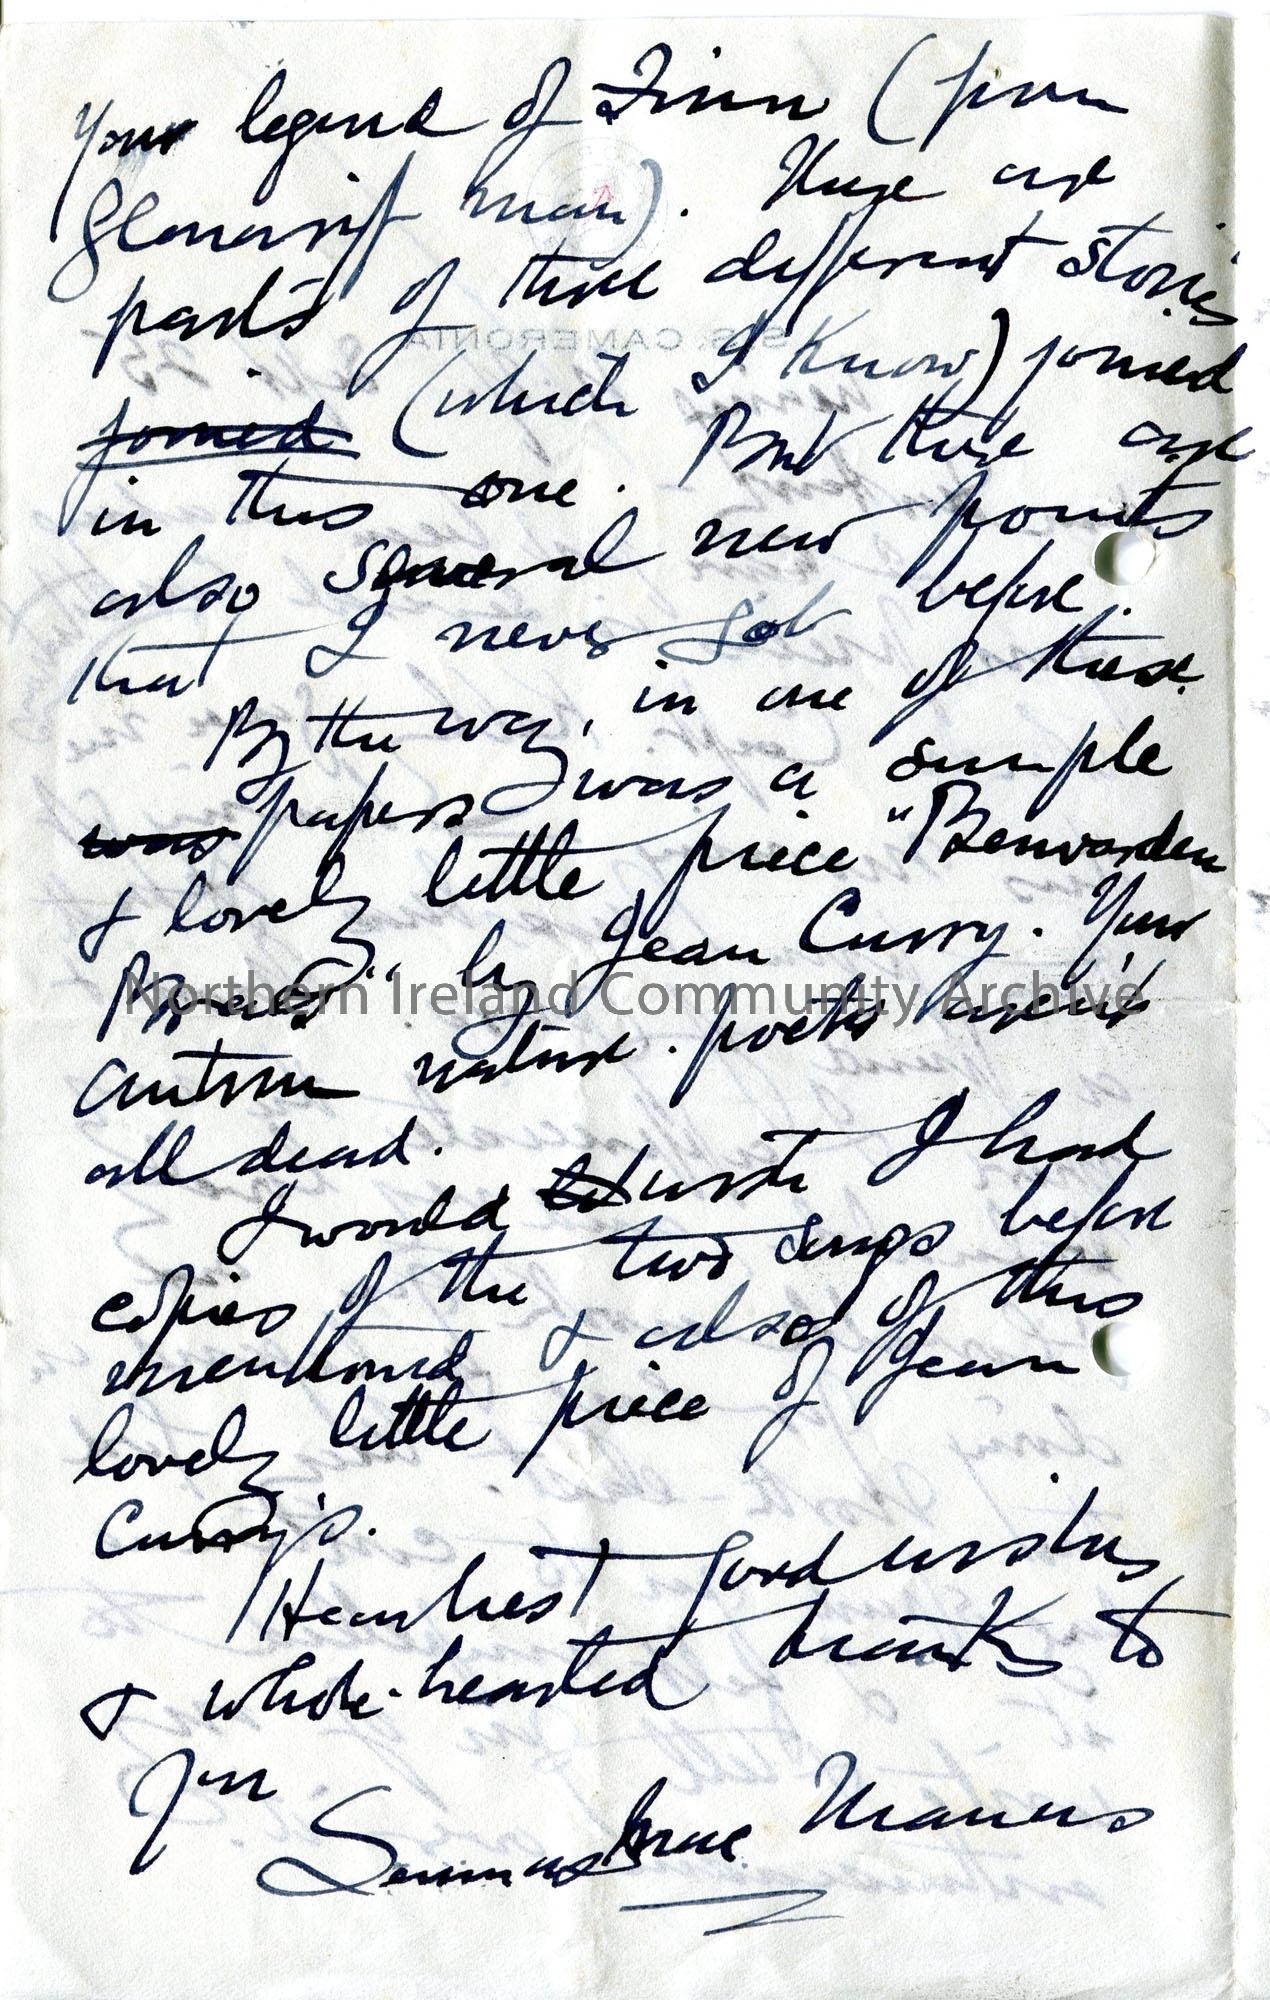 Your legend of Finn (from
Glenariff man). These are
parts of three different stories
joined (which I know) joined
in this one. But there are
also several new points
that I never got before.
By the way, in one of these
was papers was a simple
& lovely little piece "Benvarden
Braes" by Jean Curry. Your
Northern Ireland Community Archive
Antrim nature poets aren't
all dead.
I would wish I had
copies of the two songs before
mentioned & also of this
lovely little piece of Jean
Curry's.
Heartiest good wishes
& whole-hearted thanks to
you
Seumas MacManus
S.S. CAMERONIA